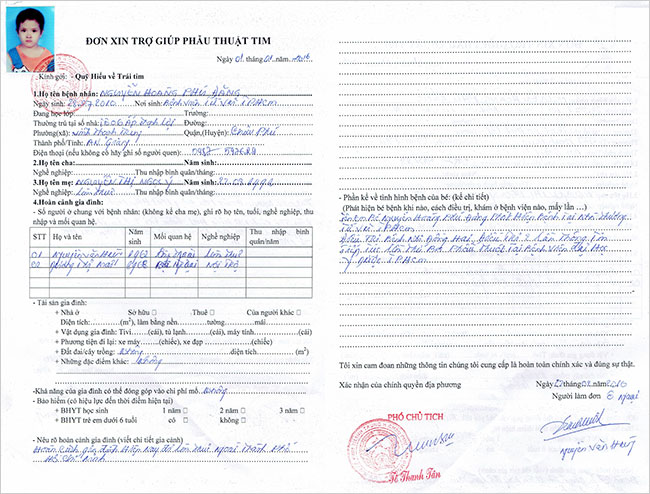 ĐƠN XIN TRỢ GIÚP PHẪU THUẬT TIM
Ngày 01 tháng 01 năm
Kính gởi: - Quỹ Hiểu về Trái tim
1.Họ tên bệnh nhân: NGUYỄN HOÀNG PHÚ ĐĂNG
Ngày sinh: 2010 Nơi sinh: Bệnh viện Từ Vũ TPHCM
Đang học lớp: Trường:
Thường trú tại số nhà: Ấp Đường:
Phường(xã): Vĩnh Thạnh Trung Quận,(Huyện) Châu Phú
Thành phố/Tỉnh: AN Giang
Điện thoại (nếu không có hãy ghi số người quen):
2.Họ tên cha: Năm sinh:
Nghề nghiệp: Thu nhập bình quân/tháng:
3.Họ tên mẹ: NGUYỄN THỊ Năm sinh:
Nghề nghiệp: Làm Thuê Thu nhập bình quân/tháng:
4.Hoàn cảnh gia đình:
- Số người ở chung với bệnh nhân: (không kể cha mẹ), ghi rõ họ tên, tuổi, nghề nghiệp, thu
nhập và mối quan hệ.
STT Họ và tên Năm sinh Mối quan hệ Nghề nghiệp Thu nhập bình quân/năm
01 Nguyễn Văn Ông Ngoại Làm Thuê
02 Bà Ngoại Nội Trợ
- Tài sản gia đình:
+ Nhà ở Sở hữu □ Thuê □ Của người khác □
Diện tích: (m²), làm bằng nền tường mái
+ Vật dụng gia đình: Tivi (cái), tủ lạnh (cái), máy tính (cái)
+ Phương tiện đi lại: xe máy (chiếc), xe đạp (chiếc)
+ Đất đai/cây trồng: không diện tích (m²)
+ Những đặc điểm khác: không
-Khả năng của gia đình có thể đóng góp vào chi phí mổ: không
- Bảo hiểm (có hiệu lực đến thời điểm hiện tại)
+ BHYT học sinh 1 năm □ 2 năm □ 3 năm □
+ BHYT trẻ em dưới 6 tuổi có □ không □
- Nêu rõ hoàn cảnh gia đình (viết chi tiết gia cảnh)
Hoàn cảnh gia đình hiện nay đi làm thuê ngoài Thành Phố
Hồ Chí Minh
- Phần kể về tình hình bệnh của bé: (kể chi tiết)
(Phát hiện bé bệnh khi nào, cách điều trị, khám ở bệnh viện nào, mấy lần …)
Bé Nguyễn Hoàng Phú Đăng Phát Hiện Bệnh Tại
TPHCM
Điều Trị Bệnh Nhi Đồng Hai, Điều Trị 2 Lần Thông Tim
Phẫu Thuật Tại Bệnh Viện Đại Học
Y Dược TPHCM
Tôi xin cam đoan những thông tin chúng tôi cung cấp là hoàn toàn chính xác và đúng sự thật.
Xác nhận của chính quyền địa phương Ngày tháng năm
Người làm đơn Ô ngoại
PHÓ CHỦ TỊCH
Tô Thanh Tân
Nguyễn Văn